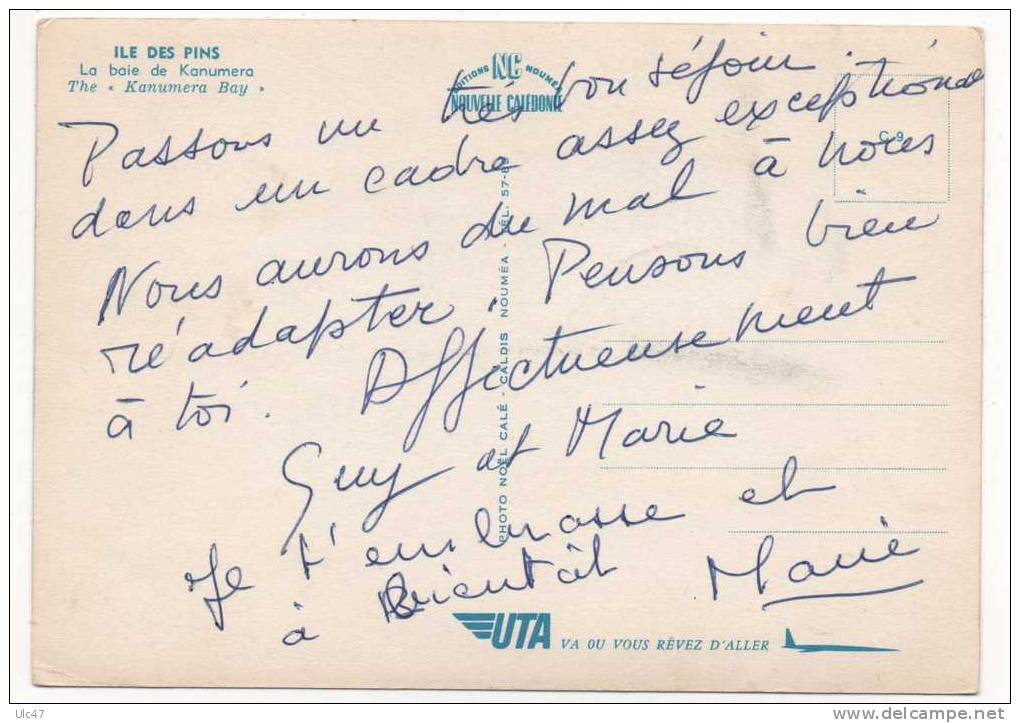 ILE DES PINS
La baie de Kanumera
The « Kanumera Bay »
EDITIONS NC NOUMEA
NOUVELLE CALÉDONIE
C 9
Passons un très bon séjour
dans un cadre assez exceptionnel
Nous aurons du mal à nous
ré adapter. Pensons bien
à toi. Affectueusement
Guy et Marie
Je t'embrasse et
à bientôt Marie
PHOTO NOËL CALÉ - CALDIS NOUMÉA - TÉL. 57-8
UTA VA OU VOUS RÊVEZ D'ALLER
Ulc47
www.delcampe.net